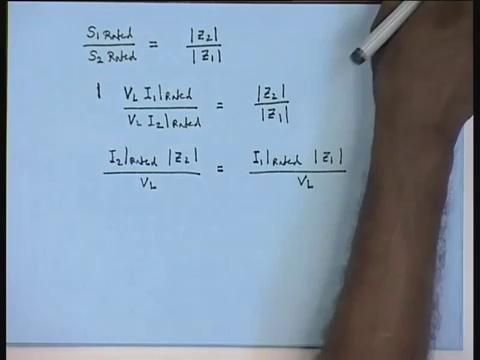 S1 Rated / S2 Rated = |Z2| / |Z1|
VL I1|Rated / VL I2|Rated = |Z2| / |Z1|
I2|Rated |Z2| / VL = I1|Rated |Z1| / VL